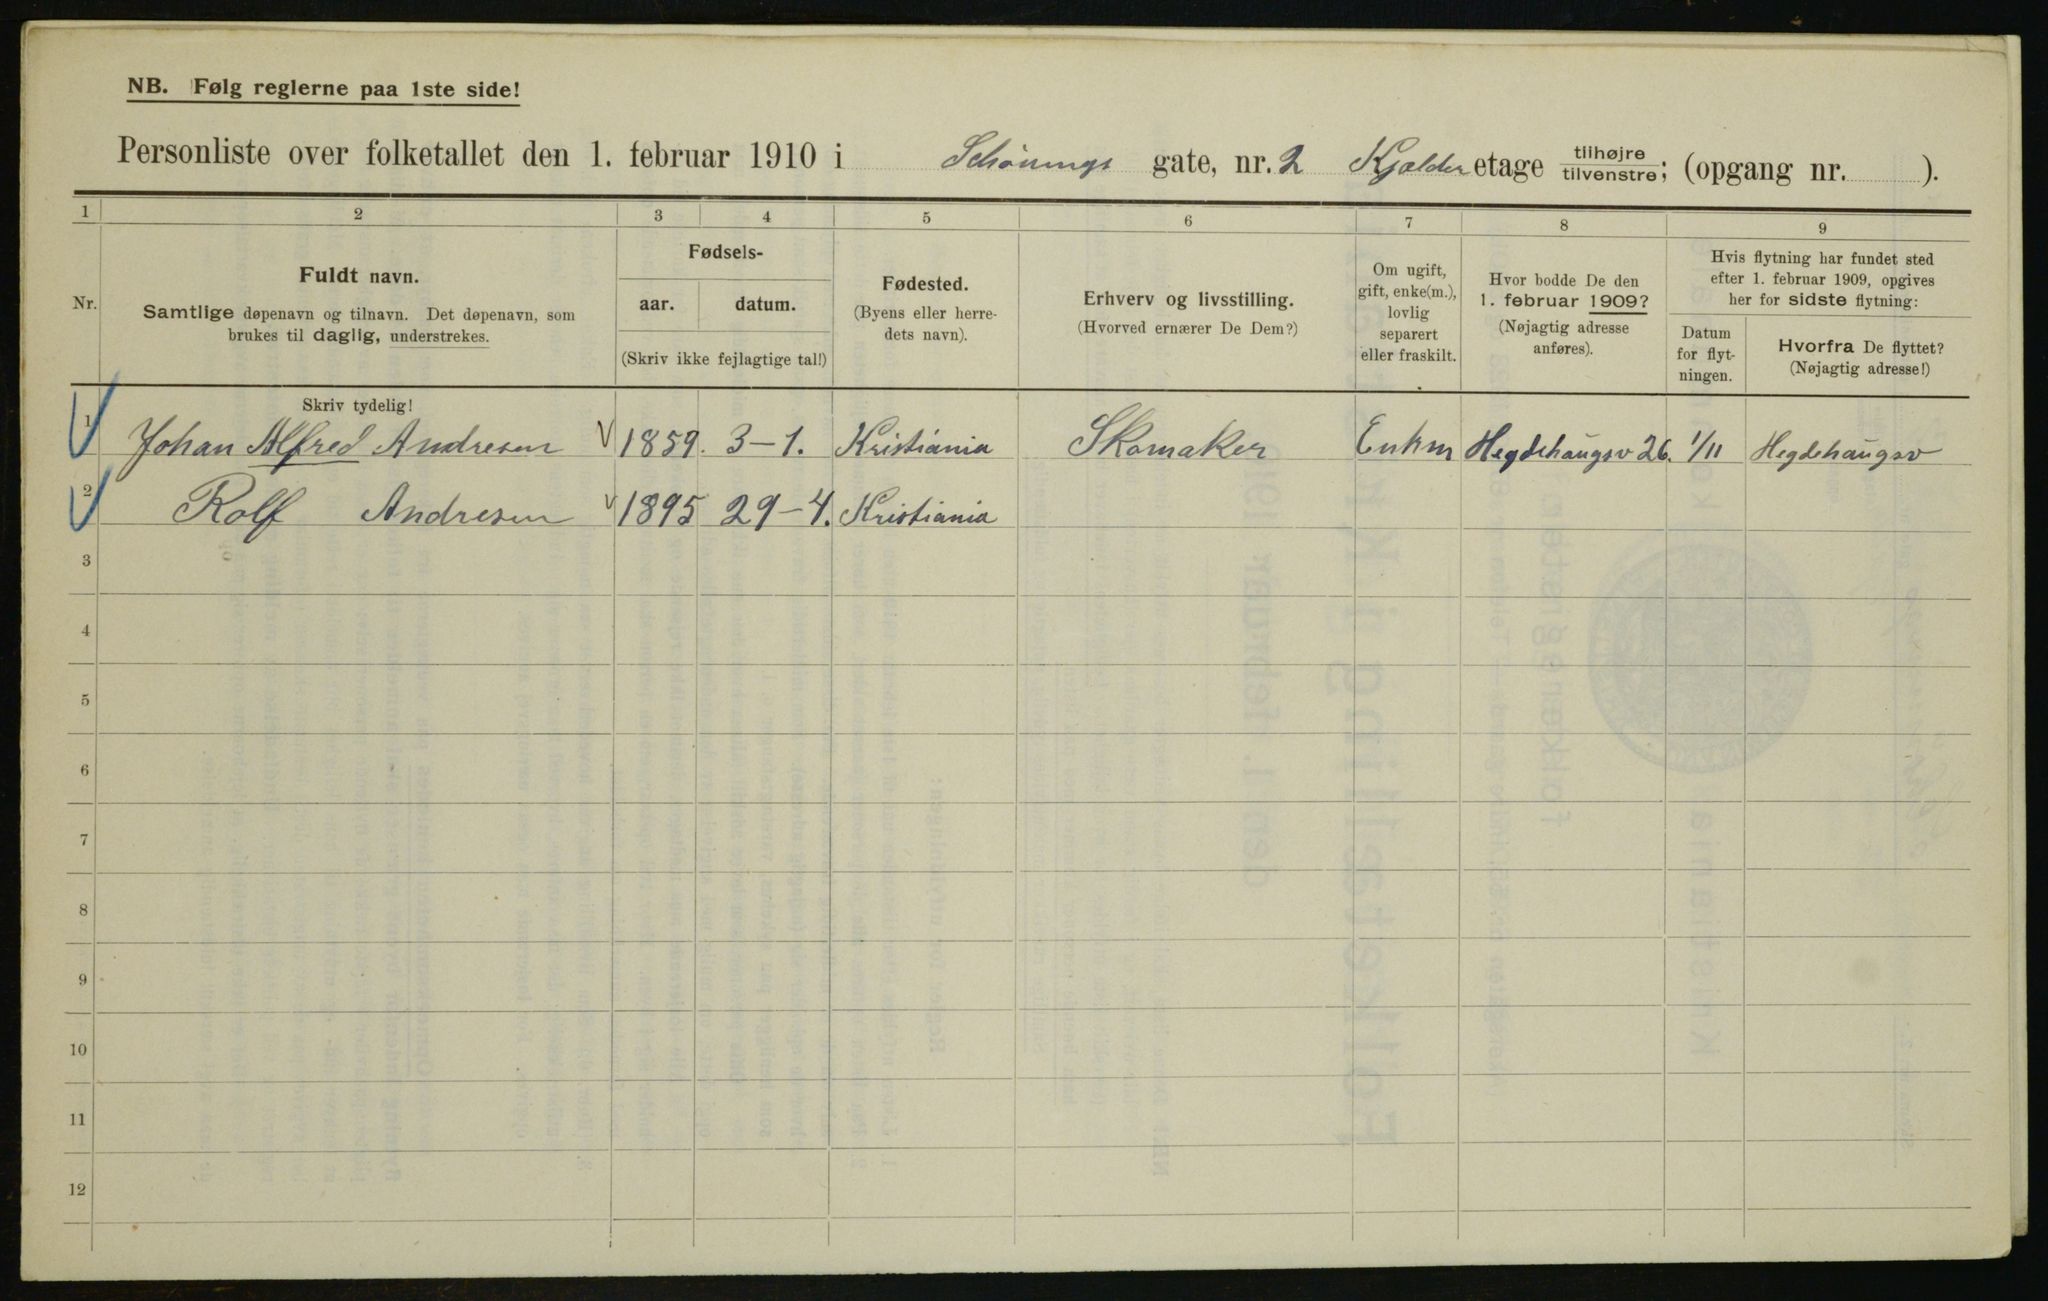 NB. Følg reglerne paa 1ste side!
Personliste over folketallet den 1. februar 1910 i Schönings gate, nr. 2 Kjælder etage tilhøjre tilvenstre; (opgang nr. ).
1 2 3 4 5 6 7 8 9
Nr.
Fuldt navn.
Samtlige døpenavn og tilnavn. Det døpenavn, som
brukes til daglig, understrekes.
Fødsels-
aar. datum.
(Skriv ikke fejlagtige tal!)
Fødested.
(Byens eller herre-
dets navn).
Erhverv og livsstilling.
(Hvorved ernærer De Dem?)
Om ugift,
gift, enke(m.),
lovlig
separert
eller fraskilt.
Hvor bodde De den
1. februar 1909?
(Nøjagtig adresse
anføres).
Hvis flytning har fundet sted
efter 1. februar 1909, opgives
her for sidste flytning:
Datum
for flyt-
ningen.
Hvorfra De flyttet?
(Nøjagtig adresse!)
Skriv tydelig!
1 Johan Alfred Andresen 1859. 3-1. Kristiania Skomaker Enkm Hegdehaugsv 26. 1/11 Hegdehaugsv
2 Rolf Andresen 1895 29-4. Kristiania
3
4
5
6
7
8
9
10
11
12